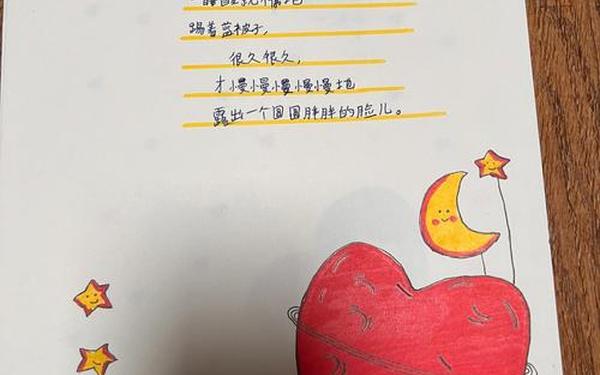 踢着蓝被子，
很久很久，
才慢慢慢慢慢慢地
露出一个圆圆胖胖的脸儿。